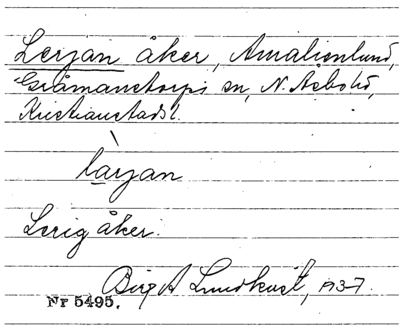 Lerjan åker, Amalienlund,
Gråmanstorps sn, N. Åsbo hd,
Kristianstads l.
larjan
Lerig åker.
Birg A Lundkvist, 1937.
Nr 5495.